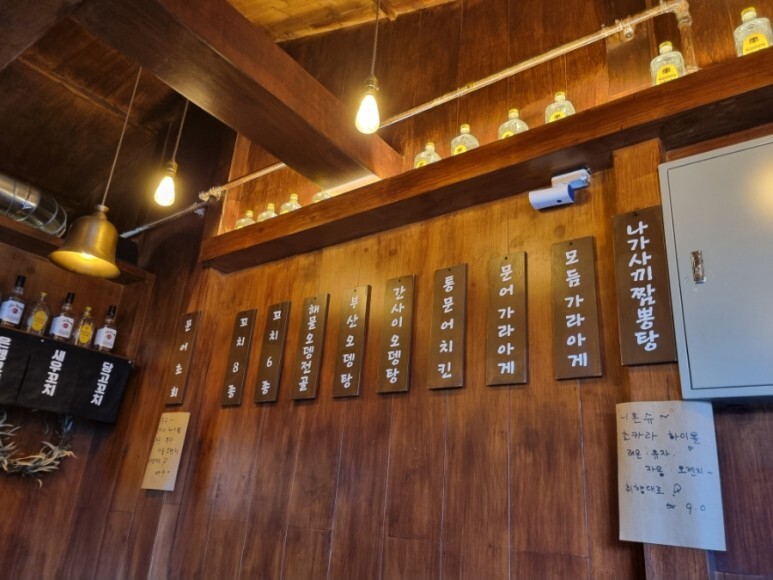 문어초회
꼬치 8종
꼬치 6종
해물오뎅전골
부산오뎅탕
간사이오뎅탕
통문어치킨
문어가라아게
모듬가라아게
나가사끼짬뽕탕
새우꼬치
당고꼬치
니혼슈~
하이볼
레몬·유자·
자몽·오렌지~
취향대로
9.0